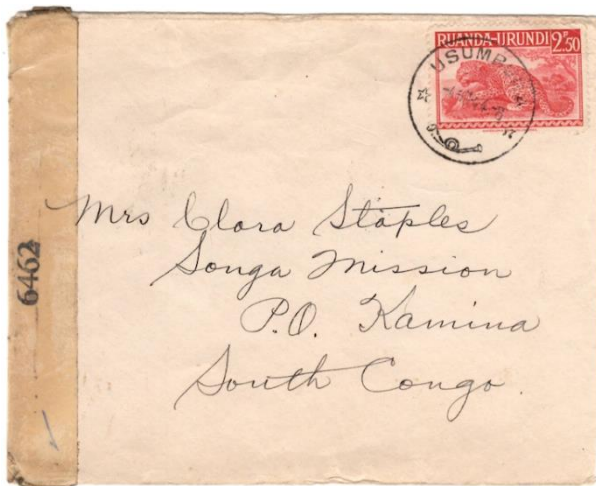 RUANDA-URUNDI 2F50
USUMBURA
6462
Mrs Clara Staples
Songa Mission
P.O. Kamina
South Congo.